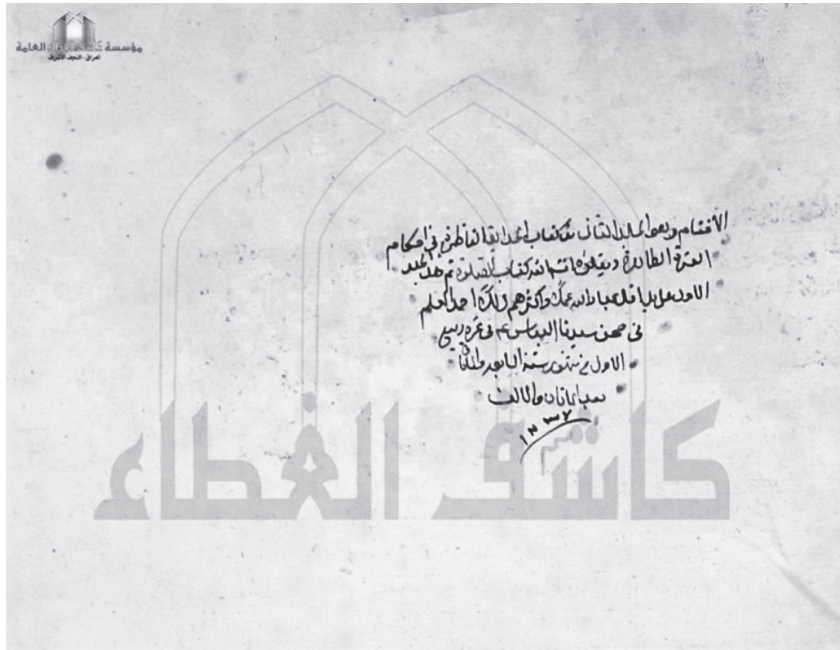 مؤسسة كاشف الغطاء العامة
العراق - النجف الأشرف
الاقسام ويعو المجلد الثاني من كتاب الحدايق الناظرة في احكام
العترة الطاهرة ويتلوه انشاء الله كتاب الصلوة تم هذا المجلد
الاول على يد اقل عباد الله عملا واكثرهم زللا احمد
في صحن سيدنا العباس ع في غرة ربيع
الاول من شهور سنة السابعة والثلاثين
بعد المأتان والالف
١٢٣٧
كاشف الغطاء